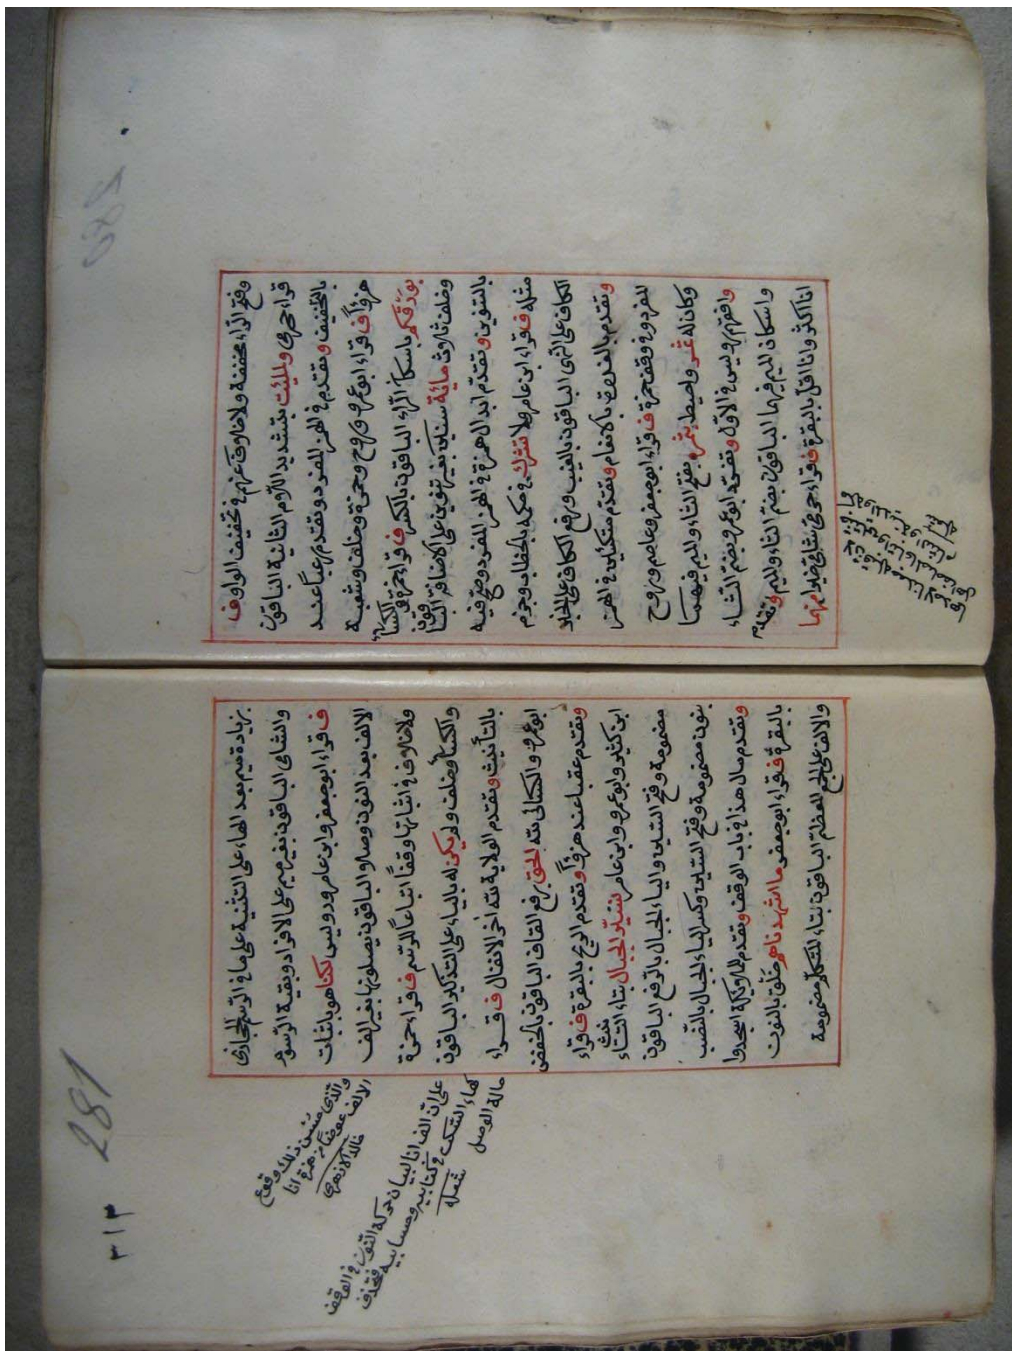 وفتح الراء مخففة ولا خلاف عنهم في تخفيف الواو ف
قراء حرمي ولملئت بتشديد اللام الثانية الباقون
بالتخفيف وتقدم في الهمز المفرد وتقدم رعباً عند
هزؤاً ف قراء ابو عمرو وروح وحمزة وخلف وشعبة
بورقكم باسكان الراء الباقون بالكسر ف قراء حمزة والكسائي
وخلف ثلاث مائة سنين بغير تنوين على الاضافة الباقون
بالتنوين وتقدم ابدال همزة في الهمز المفرد فيه
مثله ف قراء ابن عامر ولا تشرك في حكمه بالخطاب وجزم
الكاف على النهى الباقون بالغيب ورفع الكاف على الخبر
وتقدم بالغدوة بالانعام وتقدم متكئين في الهمز
المفرد ووقف حمزة ف قراء ابو جعفر وعاصم وروح
وكان له ثمر واحيط بثمره بفتح الثاء والميم فيهما
وافقهم رويس في الاول وتفرد ابو عمرو بضم الثاء
واسكان الميم فيهما الباقون بضم الثاء والميم وتقدم
انا اكثر وانا اقل بالبقرة ف قراء حرمي شامي خيرا منهما
281
٣١٣
بزيادة ميم بعد الهاء على التثنية على ما في الرسم الحجازى
والشامى الباقون بغير ميم على الافراد وبقية الرسوم
ف قراء ابو جعفر وابن عامر ورويس لكنا هو باثبات
الالف بعد النون وصلا والباقون يصلونها بغير الف
ولا خلاف في اثباتها وقفاً اتباعاً للرسم ف قراء حمزة
والكسائي وخلف ولم يكن له بالياء على التذكير الباقون
بالتأنيث وتقدم الولاية لله اخر الانفال ف قراء
ابو عمرو والكسائى لله الحق برفع القاف الباقون بالخفض
وتقدم عقبا عند هزؤاً وتقدم الريح بالبقرة ف قراء
ابن كثير وابو عمرو وابن عامر تسير الجبال بتاء التأنيث
مضمومة وفتح السين والياء الجبال بالرفع الباقون
بنون مضمومة وفتح السين وكسر الياء الجبال بالنصب
وتقدم مال هذا في باب الوقف وتقدم للملائكة اسجدوا
بالبقرة ف قراء ابو جعفر ما اشهدناهم خلق بالنون
والالف على الجمع للعظمة الباقون بتاء المتكلم مضمومة
والذى حسّن ذلك وقوع
الالف عوضاً من همزة انا
خالد الازهرى
على ان الف انا لبيان حركة النون في الوقف
كهاء السكت في كتابيه وحسابيه فتحذف
حالة الوصل
شعله